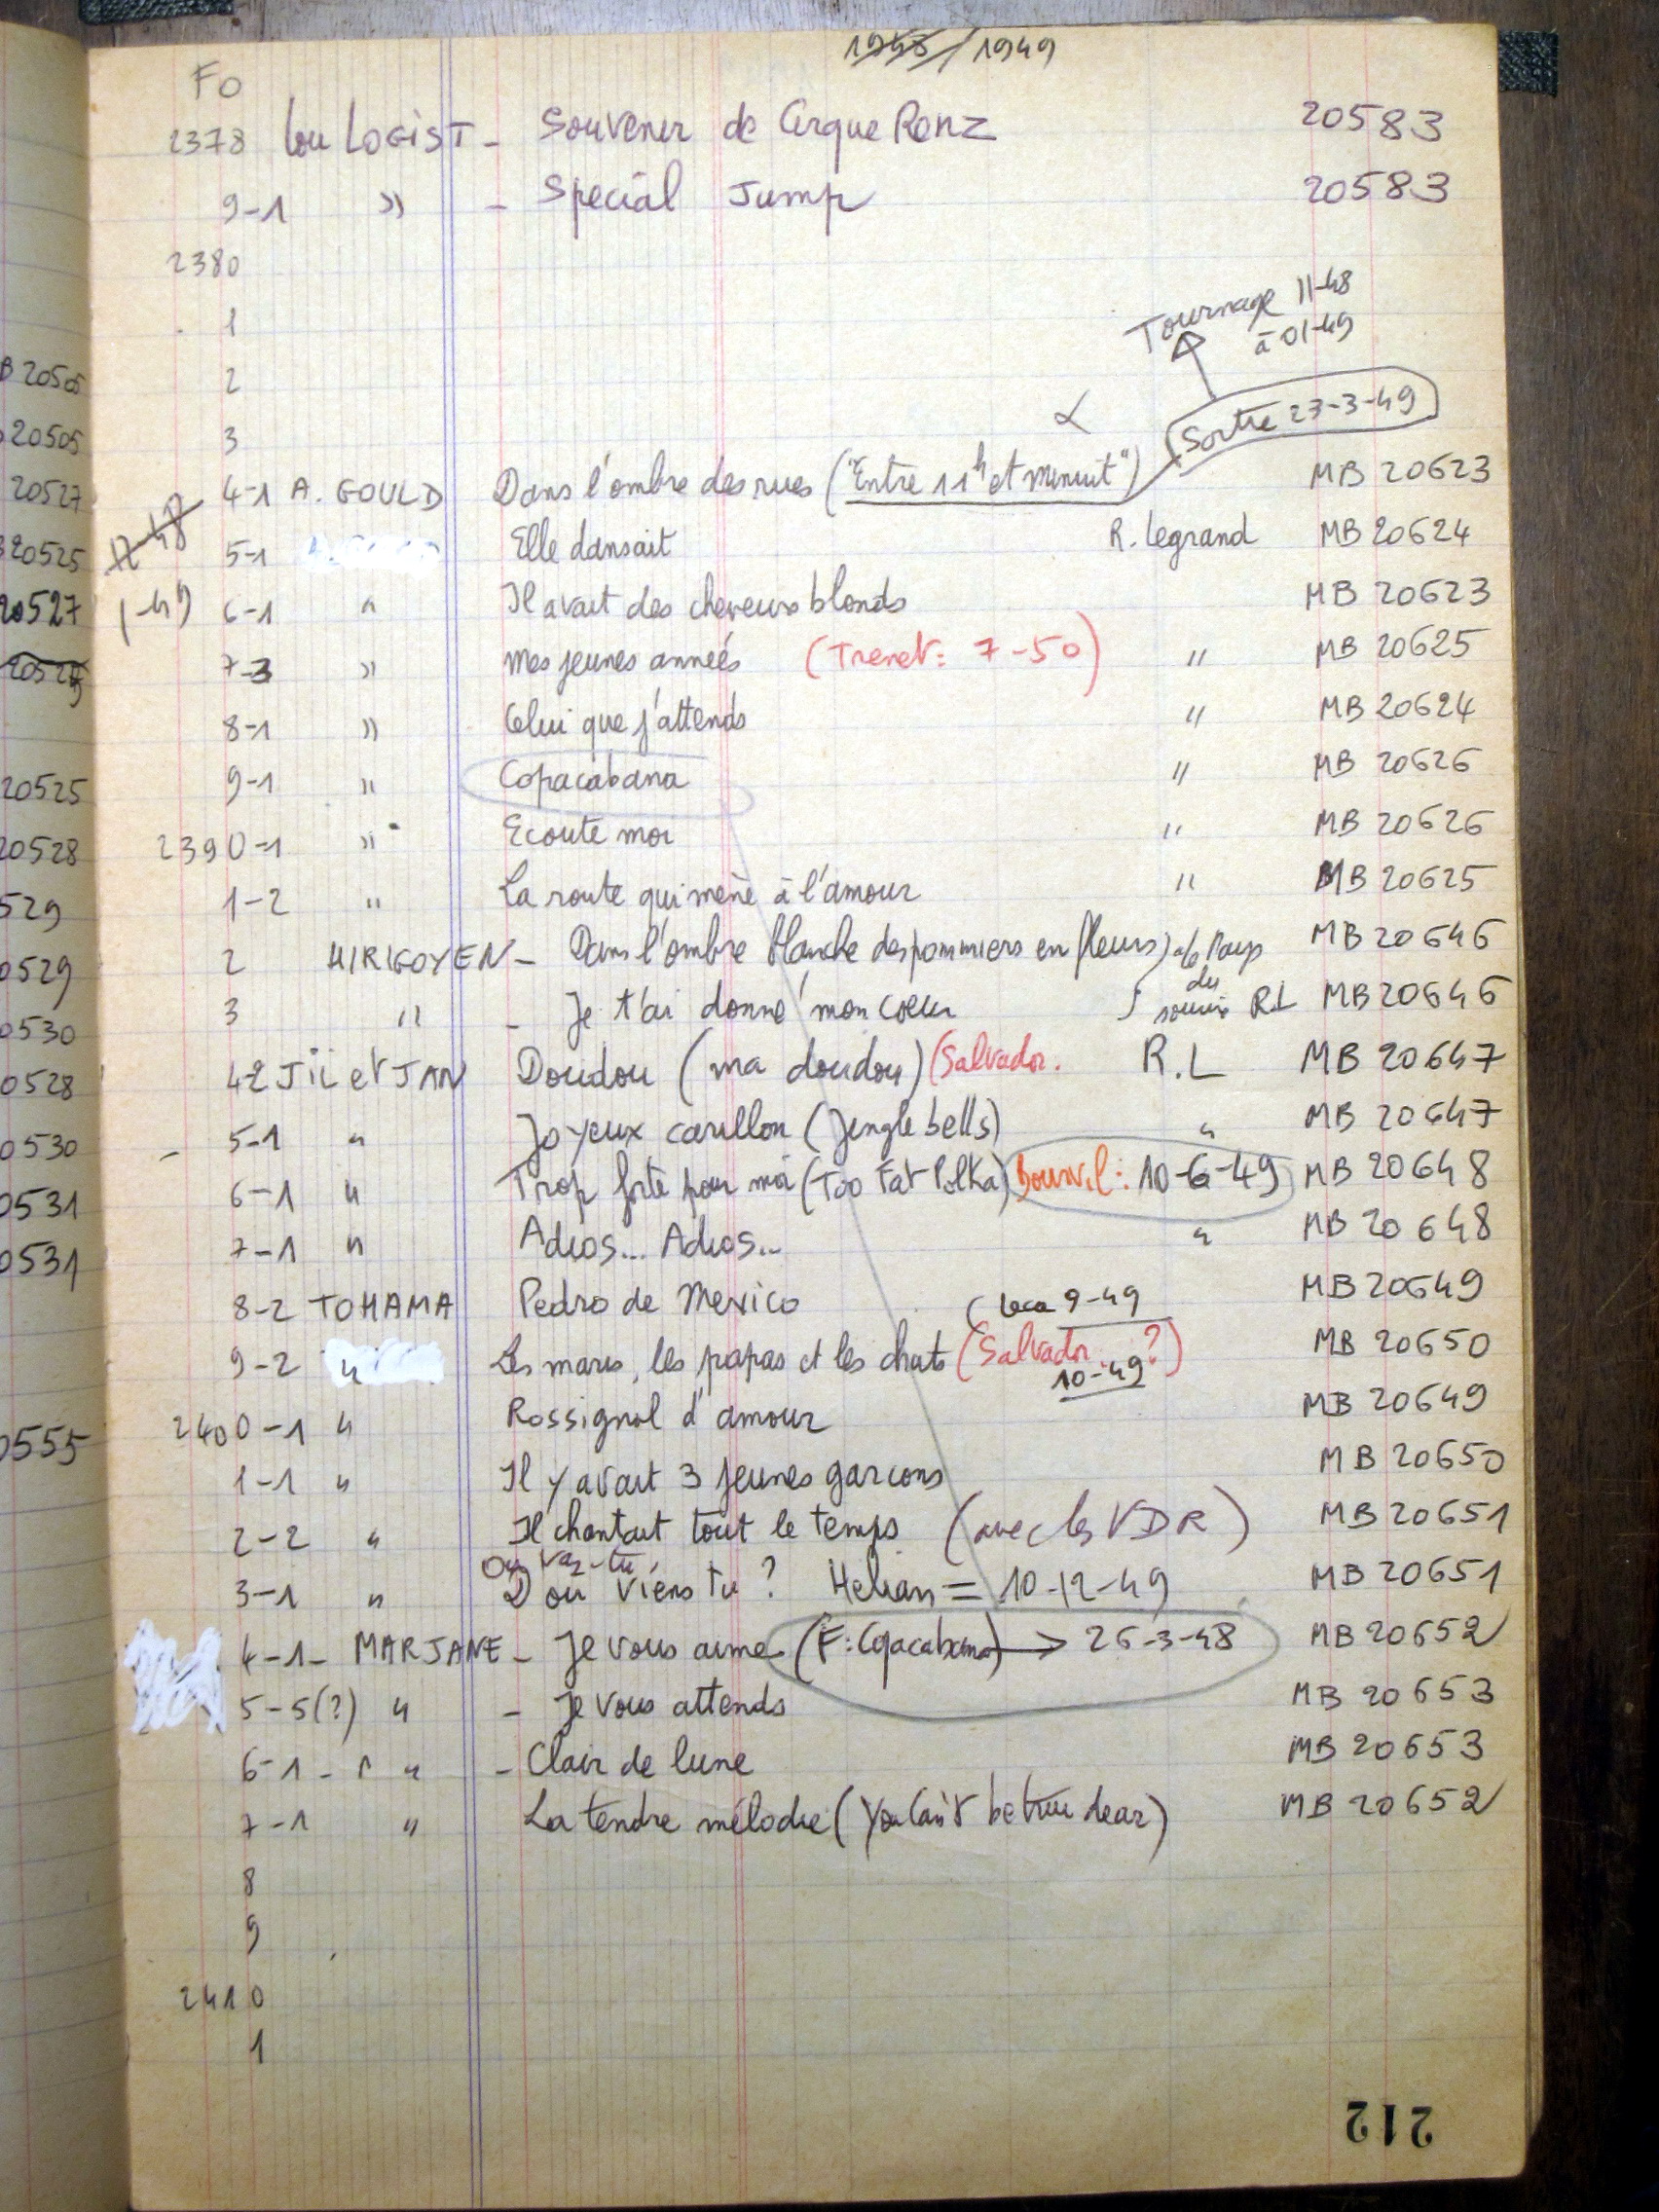 1948/1949
Fo
2378 Lou LOGIST - Souvenir de Cirque Renz 20583
9-1 " - Special Jump 20583
2380
1
Tournage 11-48
à 01-49
2
Sortie 23-3-49
3
4-1 A. GOULD Dans l'ombre des rues ("Entre 11h et Minuit") MB 20623
12-48
5-1 Elle dansait R. Legrand MB 20624
1-49 6-1 " Il avait des cheveux blonds MB 20623
7-3 " Mes jeunes années (Trenet: 7-50) " MB 20625
8-1 " Celui que j'attends " MB 20624
9-1 " Copacabana " MB 20626
2390-1 " Ecoute moi " MB 20626
1-2 " La route qui mène à l'amour " MB 20625
2 HIRIGOYEN - Dans l'ombre blanche des pommiers en fleurs) MB 20646
du
3 " - Je t'ai donné mon coeur RL MB 20646
4-2 Jil et JAN Doudou (ma doudou) (Salvador. R.L MB 20647
5-1 " Joyeux carillon (Jingle bells) " MB 20647
6-1 " Trop forte pour moi (Too Fat Polka) Bourvil: 10-6-49 MB 20648
7-1 " Adios... Adios... " MB 20648
8-2 TOHAMA Pedro de Mexico MB 20649
(Leca 9-49
9-2 " Les maris, les papas et les chats (Salvador ?) MB 20650
10-49
2400-1 " Rossignol d'amour MB 20649
1-1 " Il y avait 3 jeunes garçons MB 20650
2-2 " Il chantait tout le temps (avec les VDR) MB 20651
Ou vas-tu
3-1 " D'ou viens tu ? Helian = 10-12-49 MB 20651
4-1- MARJANE - Je vous aime (F: Copacabana) → 26-3-48 MB 20652
5-5(?) " - Je vous attends MB 20653
6-1- " - Clair de lune MB 20653
7-1 " La tendre mélodie (You Can't be true dear) MB 20652
8
9
2410
1
212
B 20505
20505
20527
20525
20527
20525
20525
20528
529
0529
0530
0528
0530
0531
0531
0555